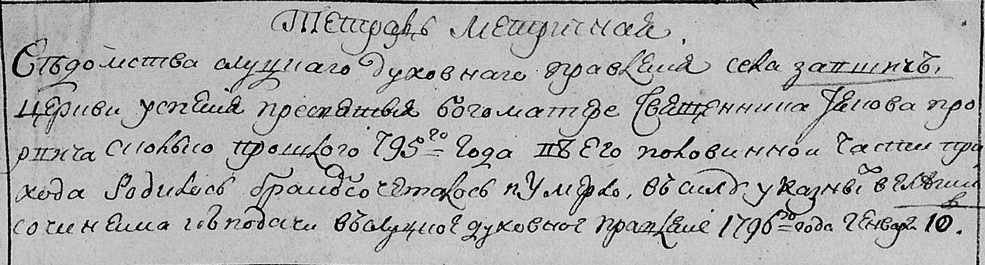 Тетрадь метричная.
Съ̾домства слуцкаго духовнаго правления села
церкви успения пресвятыя богоматре Священника Якова про
сколько прошлого 795го года въ его половинной части при
хода Родилось браковсочеталось и Умерло, въ силѣ указныхъ велений
сочинена и въ подачи въ слуцкое духовное правление 1796го года Генваря 10.